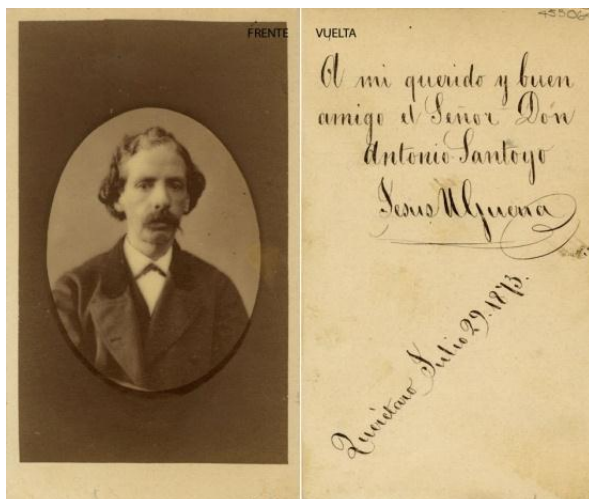 FRENTE
VUELTA
45506
A mi querido y buen
amigo el Señor Dón
Antonio Santoyo
Jesus
Querétaro Julio 29. 1873.